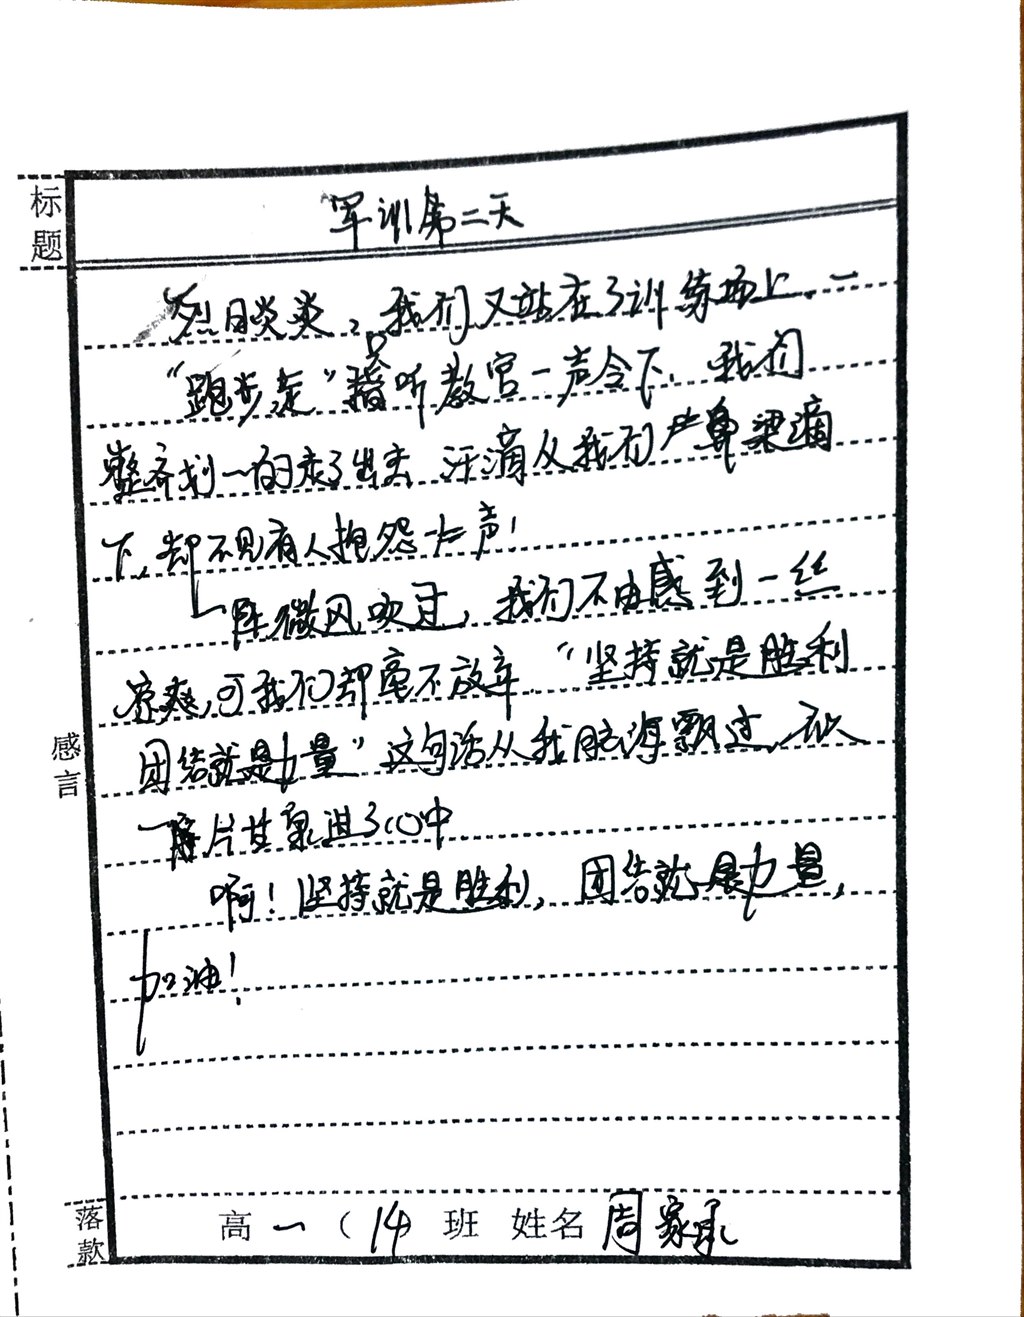 标题
军训第二天
烈日炎炎，我们又站在了训练场上。一
“跑步走”听教官一声令下，我们
整齐划一的走了出去 汗滴从我们鼻梁滴
下，却不见有人抱怨一声！
一阵微风吹过，我们不由感到一丝
凉爽，可我们却毫不放弃 “坚持就是胜利
团结就是力量”这句话从我脑海飘过，似
一片甘泉进了心中
啊！坚持就是胜利，团结就是力量，
加油！
感言
落款
高一（14）班 姓名 周家承